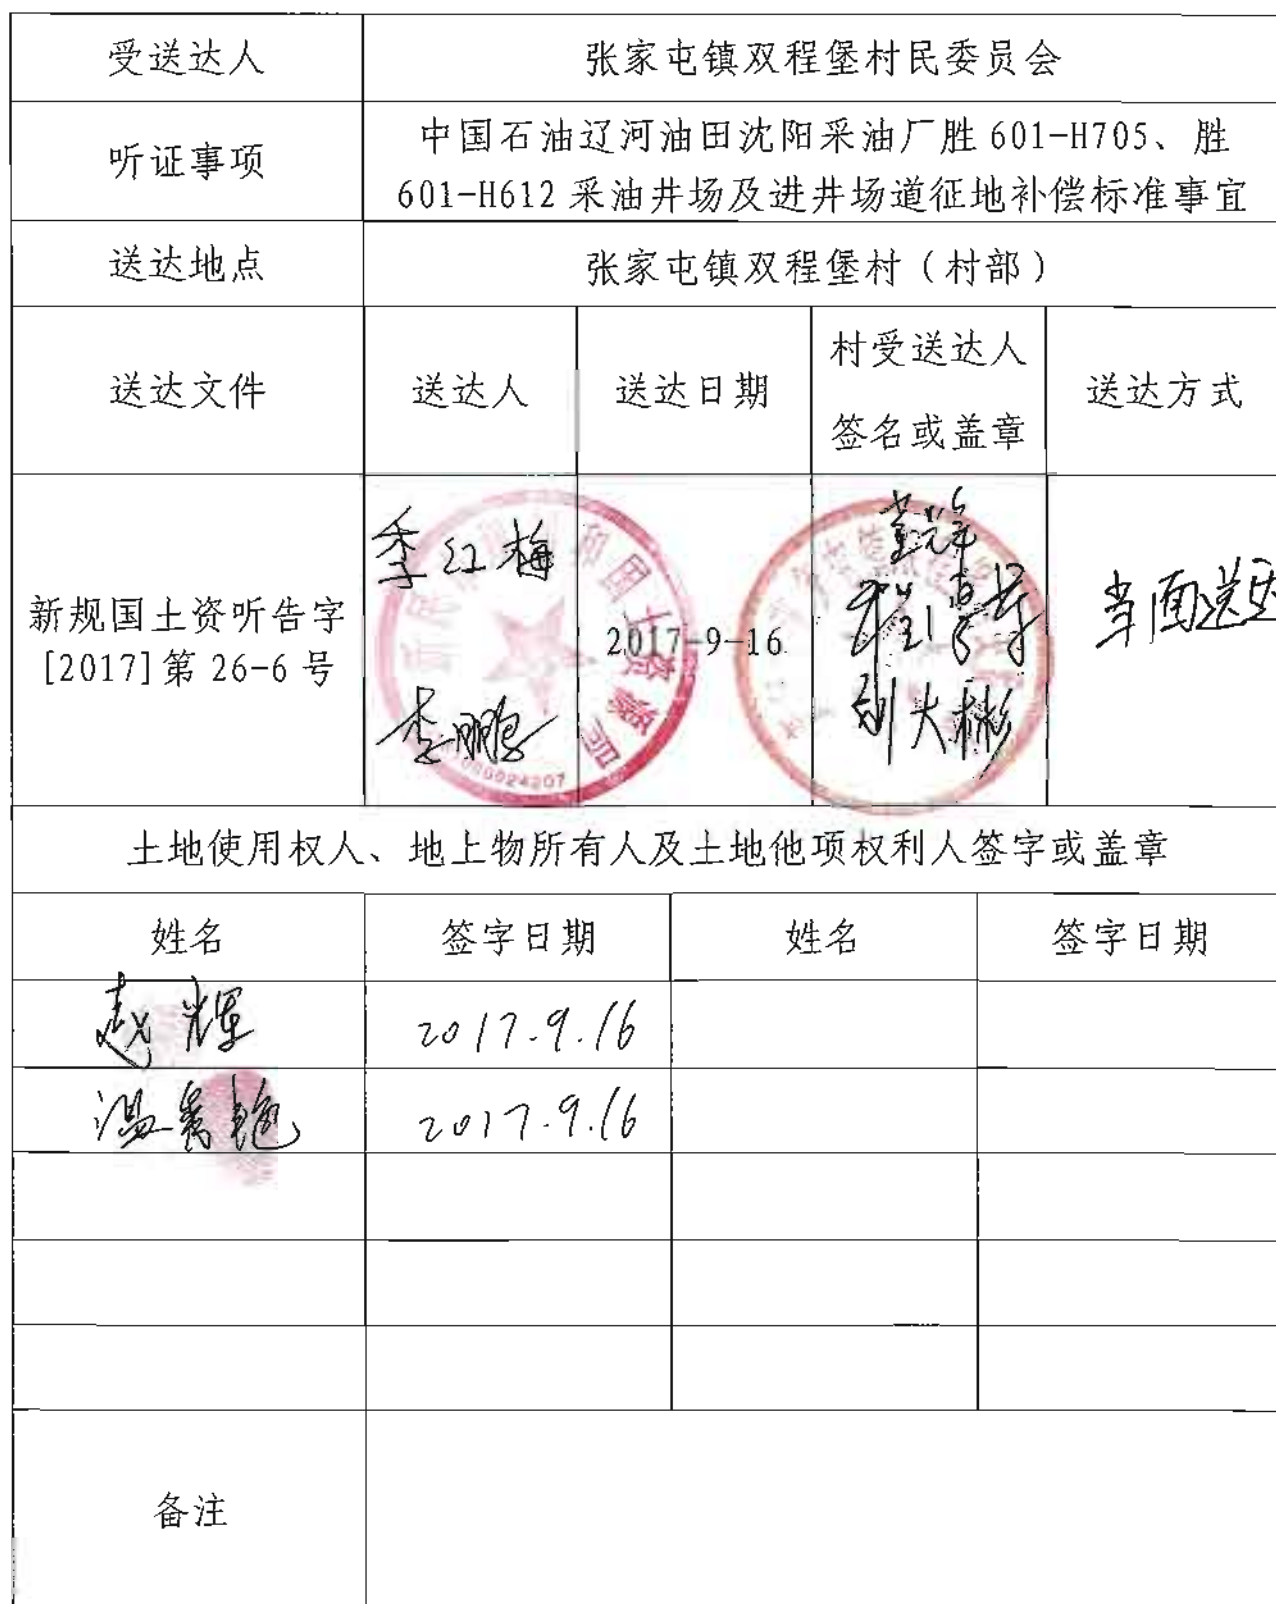 受送达人
张家屯镇双程堡村民委员会
听证事项
中国石油辽河油田沈阳采油厂胜601-H705、胜
601-H612采油井场及进井场道征地补偿标准事宜
送达地点
张家屯镇双程堡村（村部）
送达文件
送达人
送达日期
村受送达人
签名或盖章
送达方式
新规国土资听告字
[2017]第 26-6 号
季红梅
李鹏
2017-9-16
刘大彬
当面送达
土地使用权人、地上物所有人及土地他项权利人签字或盖章
姓名
签字日期
姓名
签字日期
赵辉
2017.9.16
温
2017.9.16
备注